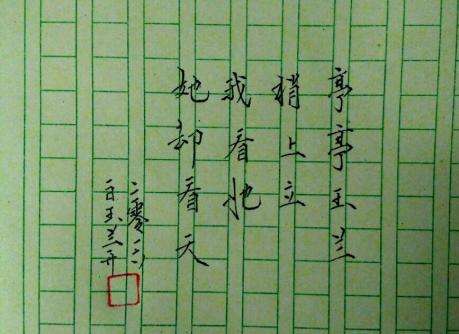 亭亭玉兰
稍上立
我看她
她却看天
二零一二
白玉兰开